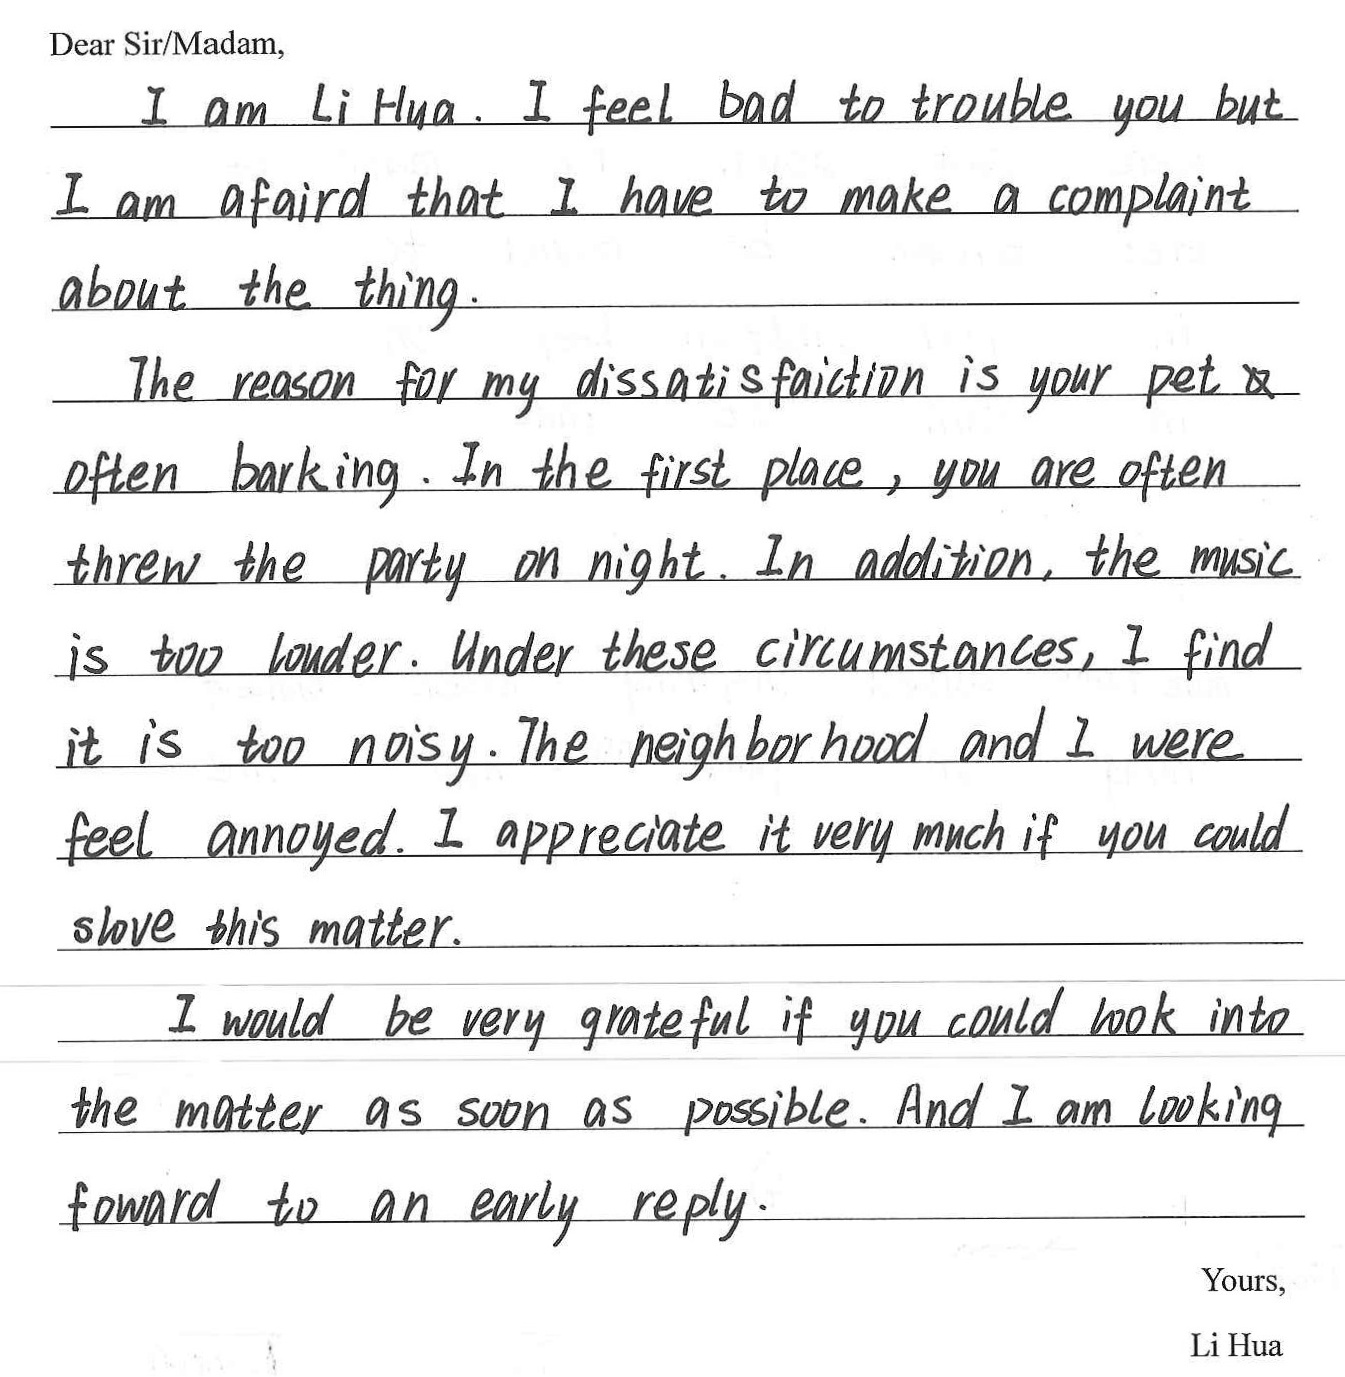 Dear Sir/Madam,
I am Li Hua. I feel bad to trouble you but
I am afaird that I have to make a complaint
about the thing.
The reason for my dissatisfaiction is your pet
often barking. In the first place, you are often
threw the party on night. In addition, the music
is too louder. Under these circumstances, I find
it is too noisy. The neighborhood and I were
feel annoyed. I appreciate it very much if you could
slove this matter.
I would be very grateful if you could look into
the matter as soon as possible. And I am looking
foward to an early reply.
Yours,
Li Hua